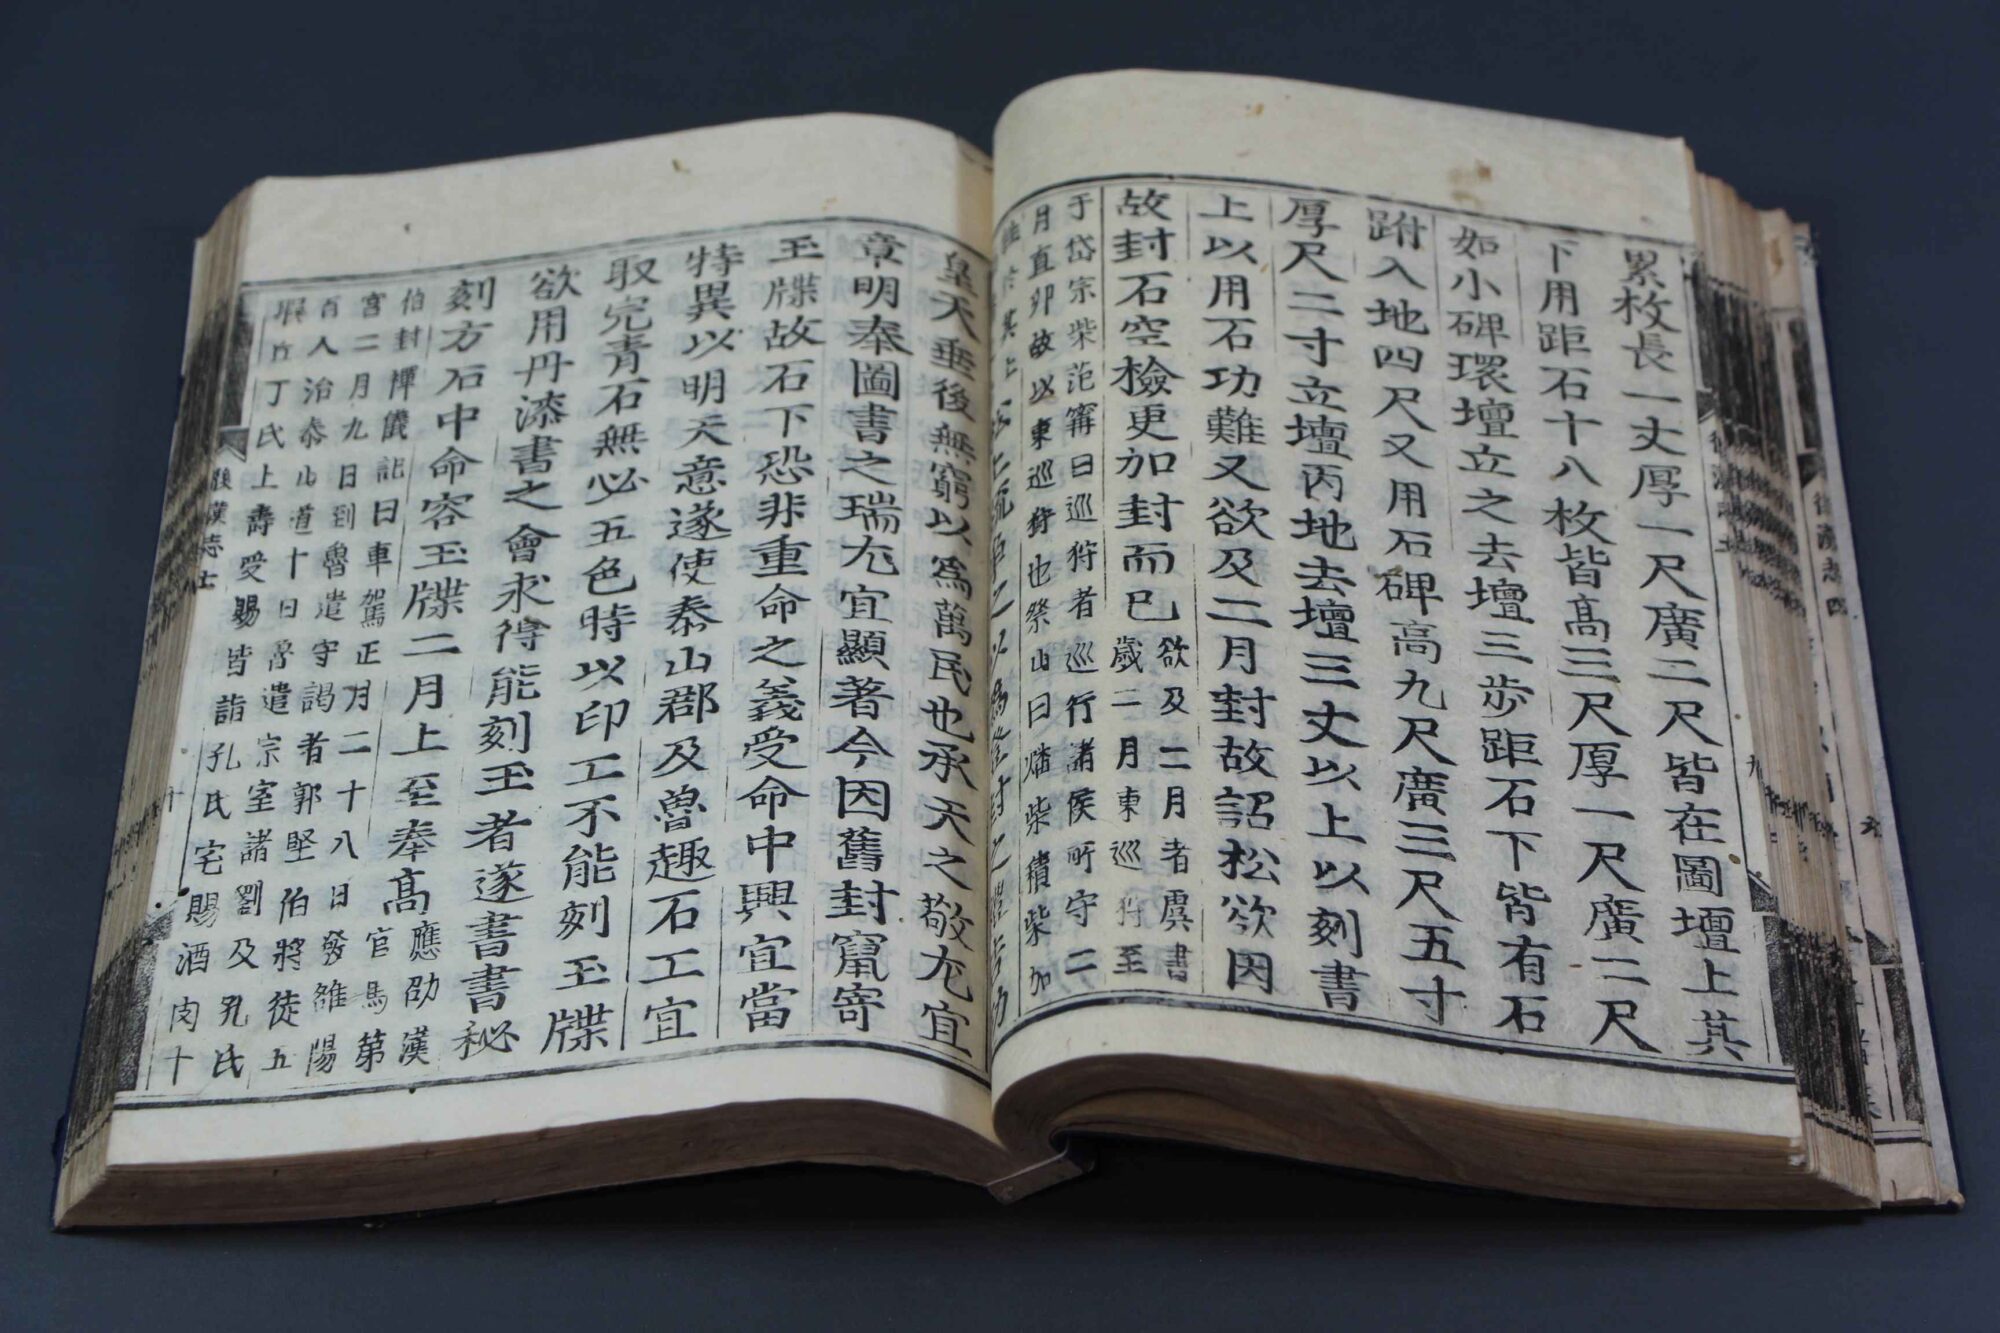 累枚長一丈厚一尺廣二尺皆在圖壇上其
下用距石十八枚皆高三尺厚一尺廣二尺
如小碑環壇立之去壇三步距石下皆有石
跗入地四尺又用石碑高九尺廣三尺五寸
厚尺二寸立壇丙地去壇三丈以上以刻書
上以用石功難又欲及二月封故詔松欲因
故封石空檢更加封而已
欲及二月者虞書
歲二月東巡狩至
于岱宗柴范甯曰巡狩者巡行諸侯所守二
月直卯故以東巡狩也祭山曰燔柴積柴加
其上
皇天垂後無窮以爲萬民也承天之敬尤宜
章明奉圖書之瑞尤宜顯著今因舊封竄寄
玉牒故石下恐非重命之義受命中興宜當
特異以明天意遂使泰山郡及魯趣石工宜
取完青石無必五色時以印工不能刻玉牒
欲用丹漆書之會求得能刻玉者遂書書秘
刻方石中命容玉牒二月上至奉高
應劭漢
官馬第
伯封禪儀記曰車駕正月二十八日發雒陽
宮二月九日到魯遣守謁者郭堅伯將徒五
百人治泰山道十日魯遣宗室諸劉及孔氏
瑕丘丁氏上壽受賜皆詣孔氏宅賜酒肉十
後漢志七
十